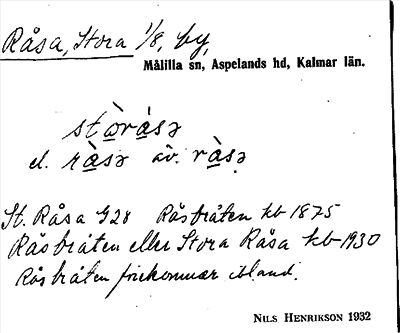 Råsa, Stora 1/8, by,
Målilla sn, Aspelands hd, Kalmar län.
stòrásə
el. ràsə äv. ràsə
St. Råsa G28 Råsbråten kb 1875
Råsbråten eller Stora Råsa kb 1930
Råsbråten förekommer ibland.
NILS HENRIKSON 1932